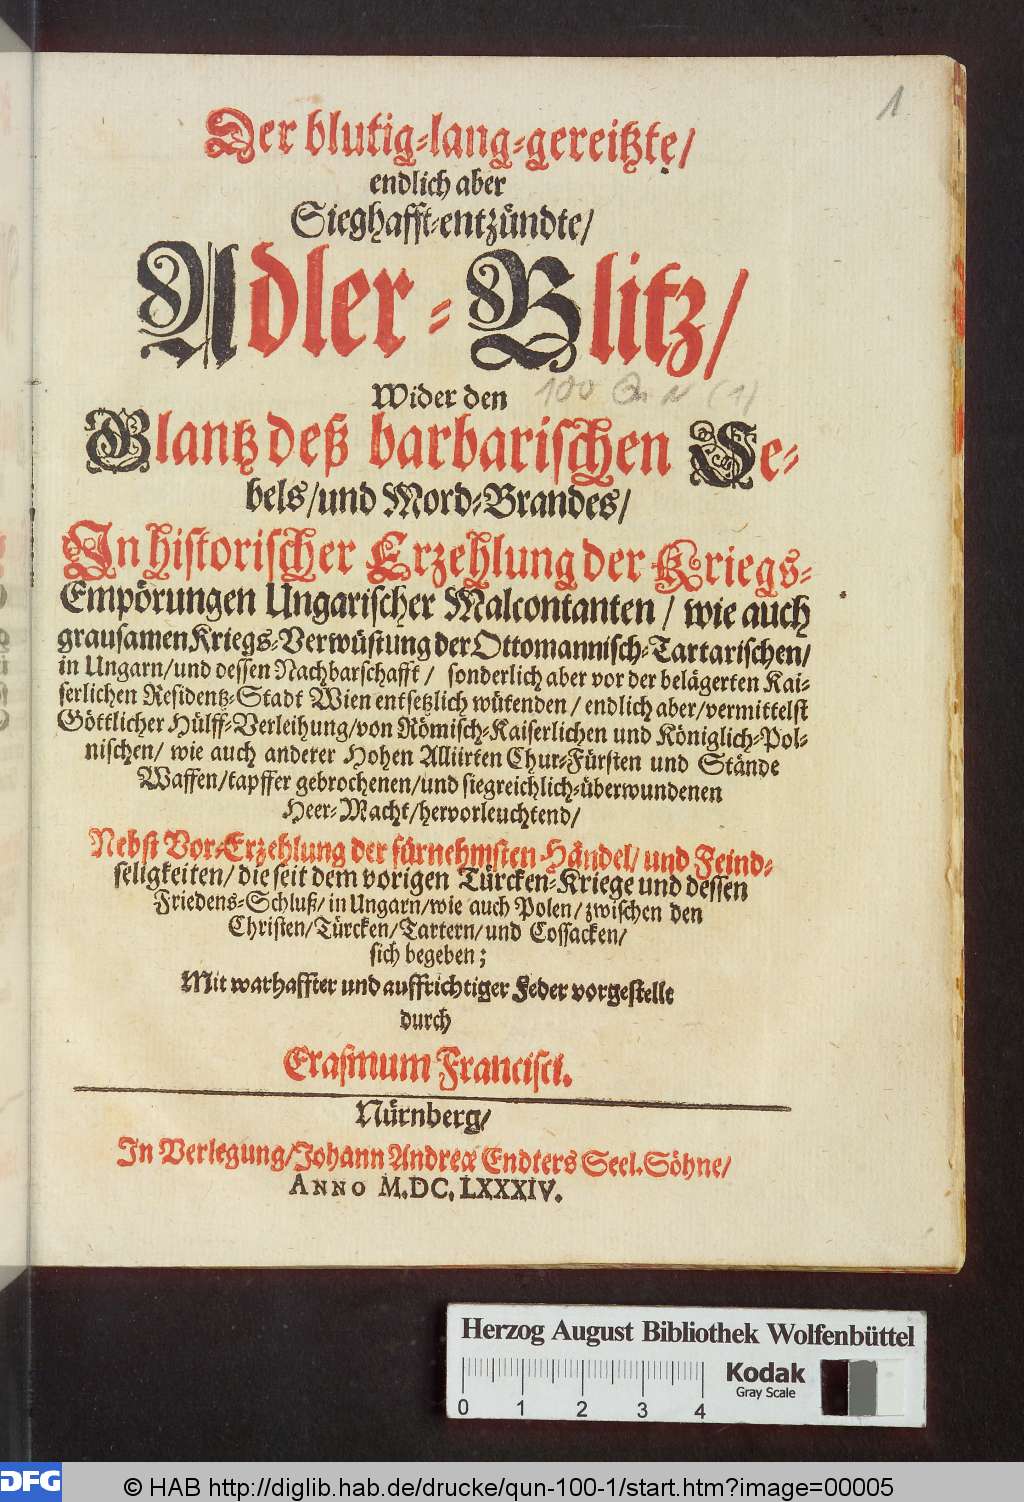 1
Der blutig-lang-gereitzte/
endlich aber
Sieghafft-entzündte/
Adler-Blitz/
Wider den
100 Qu N (1)
Glantz deß barbarischen Se-
bels/und Mord-Brandes/
In historischer Erzehlung der Kriegs-
Empörungen Ungarischer Malcontanten / wie auch
grausamen Kriegs-Verwüstung der Ottomannisch-Tartarischen/
in Ungarn/und dessen Nachbarschafft / sonderlich aber vor der belägerten Kai-
serlichen Residentz-Stadt Wien entsetzlich wütenden / endlich aber/vermittelst
Göttlicher Hülff-Verleihung/von Römisch-Kaiserlichen und Königlich-Pol-
nischen/ wie auch anderer Hohen Alliirten Chur-Fürsten und Stände
Waffen/tapffer gebrochenen/und siegreichlich-überwundenen
Heer-Macht/hervorleuchtend/
Nebst Vor-Erzehlung der fürnehmsten Händel/ und Feind-
seligkeiten/ die seit dem vorigen Türcken-Kriege und dessen
Friedens-Schluß/ in Ungarn/wie auch Polen/ zwischen den
Christen/Türcken/Tartern/und Cossacken/
sich begeben;
Mit warhaffter und auffrichtiger Feder vorgestellt
durch
Erasmum Francisci.
Nürnberg/
In Verlegung/Johann Andreæ Endters Seel. Söhne/
ANNO M.DC.LXXXIV.
Herzog August Bibliothek Wolfenbüttel
Kodak
Gray Scale
0 1 2 3 4
DFG © HAB http://diglib.hab.de/drucke/qun-100-1/start.htm?image=00005